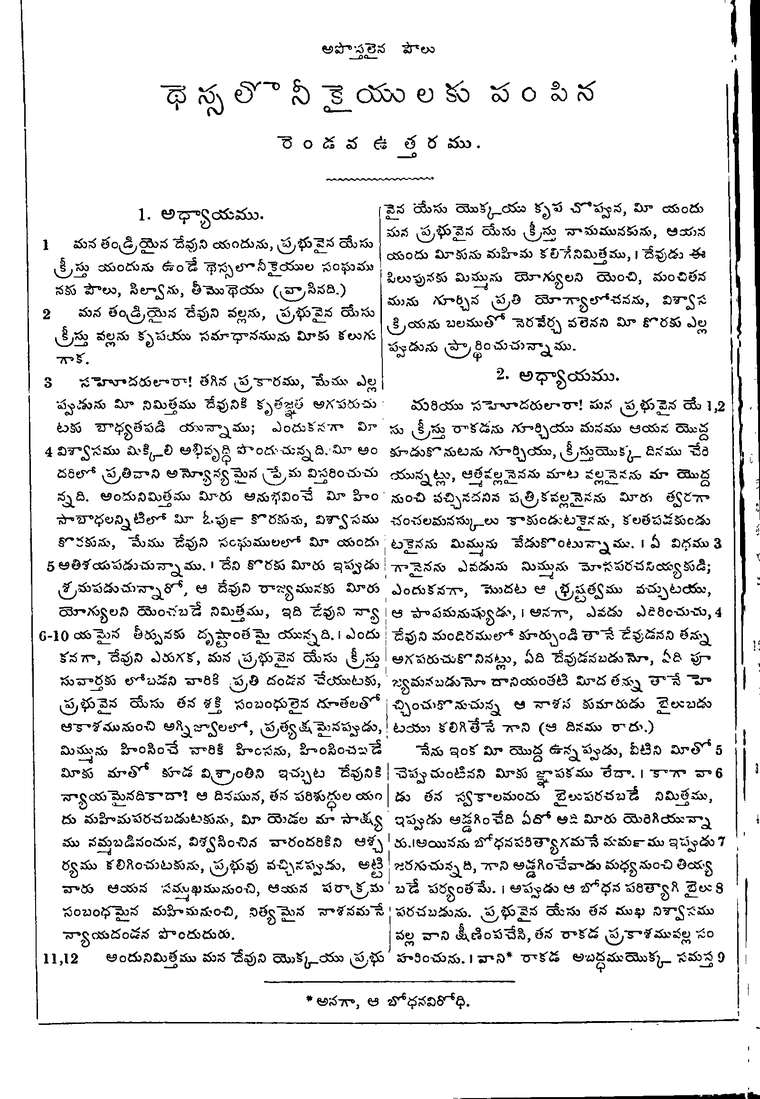 అపొస్తలైన పౌలు
థెస్సలొనీకైయులకు పంపిన
రెండవ ఉత్తరము.
1. అధ్యాయము.
1 మన తండ్రియైన దేవుని యందును, ప్రభువైన యేసు
క్రీస్తు యందును ఉండే థెస్సలొనీకైయుల సంఘము
నకు పౌలు, సిల్వాను, తీమొథెయు (వ్రాసినది.)
2 మన తండ్రియైన దేవుని వల్లను, ప్రభువైన యేసు
క్రీస్తు వల్లను కృపయు సమాధానమును మీకు కలుగు
గాక.
3 సహెూదరులారా! తగిన ప్రకారము, మేము ఎల్ల
ప్పుడును మీ నిమిత్తము దేవునికి కృతజ్ఞత అగపరుచు
టకు బాధ్యతపడి యున్నాము; ఎందుకనగా మీ
4 విశ్వాసము మిక్కిలి అభివృద్ధి పొందుచున్నది. మీ అం
దరిలో ప్రతివాని అన్యోన్యమైన ప్రేమ విస్తరించుచు
న్నది. అందునిమిత్తము మీరు అనుభవించే మీ హిం
సాబాధలన్నిటిలో మీ ఓపుణ కొరకును, విశ్వాసము
కొరకును, మేము దేవుని సంఘములలో మీ యందు
5 అతిశయపడుచున్నాము. । దేని కొరకు మీరు ఇప్పుడు
శ్రమపడుచున్నారో, ఆ దేవుని రాజ్యమునకు మీరు
యోగ్యులని యెంచబడే నిమిత్తము, ఇది దేవుని న్యా
6-10 యమైన తీర్పునకు దృష్టాంతమై యున్నది. । ఎందు
కనగా, దేవుని ఎరుగక, మన ప్రభువైన యేసు క్రీస్తు
సువార్తకు లోబడని వారికి ప్రతి దండన చేయుటకు,
ప్రభువైన యేసు తన శక్తి సంబంధులైన దూతలతో
ఆకాశమునుంచి అగ్నిజ్వాలలో, ప్రత్యక్షమైనప్పుడు,
మిమ్మును హింసించే వారికి హింసను, హింసించబడే
మీకు మాతో కూడ విశ్రాంతిని ఇచ్చుట దేవునికి
న్యాయమైనదికాదా? ఆ దినమున, తన పరిశుద్ధుల యం
దు మహిమపరచబడుటకును, మీ యెడల మా సాక్ష్య
ము నమ్మబడినందున, విశ్వసించిన వారందరికిని ఆశ్చ
ర్యము కలిగించుటకును, ప్రభువు వచ్చినప్పుడు, అట్టి
వారు ఆయన సమ్ముఖమునుంచి, ఆయన పరాక్రమ
సంబంధమైన మహిమనుంచి, నిత్యమైన నాశనమనే
న్యాయదండన పొందుదురు.
11,12 అందునిమిత్తము మన దేవుని యొక్కయు ప్రభు
వైన యేసు యొక్కయు కృప చొప్పున, మీ యందు
మన ప్రభువైన యేసు క్రీస్తు నామమునకును, ఆయన
యందు మీకును మహిమ కలిగేనిమిత్తము, । దేవుడు ఈ
పిలుపునకు మిమ్మును యోగ్యులని యెంచి, మంచితన
మును గూర్చిన ప్రతి యోగ్యాలోచనను, విశ్వాస
క్రియను బలముతో నెరవేర్చ వలెనని మీ కొరకు ఎల్ల
ప్పుడును ప్రార్థించుచున్నాము.
2. అధ్యాయము.
మరియు సహెూదరులారా! మన ప్రభువైన యే 1,2
సు క్రీస్తు రాకడను గూర్చియు మనము ఆయన యొద్ద
కూడుకొనుటను గూర్చియు, క్రీస్తుయొక్క దినము చేరి
యున్నట్లు, ఆత్మవల్లవైనను మాట వల్లనైనను మా యొద్ద
నుంచి వచ్చినదనిన పత్రికవల్లనైనను మీరు త్వరగా
చంచలమనస్కులు కాకుండుటకైనను, కలతపడకుండు
టకైనను మిమ్మును వేడుకొంటున్నాము. । ఏ విధము 3
గానైనను ఎవడును మిమ్మును మోసపరచనియ్యకుడి;
ఎందుకనగా, మొదట ఆ భ్రష్టత్వము వచ్చుటయు,
ఆ పాపమనుష్యుడు, । అనగా, ఎవడు ఎదిరించుచు, 4
దేవుని మందిరములో కూర్చుండి తానే దేవుడనని తన్ను
అగపరుచుకొనినట్లు, ఏది దేవుడనబడునో, ఏది పూ
జ్యమనబడునో దానియంతటి మీద తన్ను తానే హె
చ్చించుకొనుచున్న ఆ నాశన కుమారుడు బైలుబడు
టయు కలిగితేనే గాని (ఆ దినము రాదు.)
నేను ఇంక మీ యొద్ద ఉన్నప్పుడు, వీటిని మీతో 5
చెప్పుచుంటినని మీకు జ్ఞాపకము లేదా. । కాగా వా 6
డు తన స్వకాలమందు బైలుపరచబడే నిమిత్తము,
ఇప్పుడు అడ్డగించేది ఏదో అది మీరు యెరిగియున్నా
రు. । అయినను బోధనపరిత్యాగమనే మర్మము ఇప్పుడు 7
జరుగుచున్నది, గాని అడ్డగించేవాడు మధ్యనుంచి తియ్య
బడే పర్యంతమే. । అప్పుడు ఆ బోధన పరిత్యాగి బైలు 8
పరచబడును. ప్రభువైన యేసు తన ముఖ నిశ్వాసము
వల్ల వాని క్షీణింపచేసి, తన రాకడ ప్రకాశమువల్ల సం
హరించును. । వాని* రాకడ అబద్ధముయొక్క సమస్త 9
* అనగా, ఆ బోధనవిరోధి.